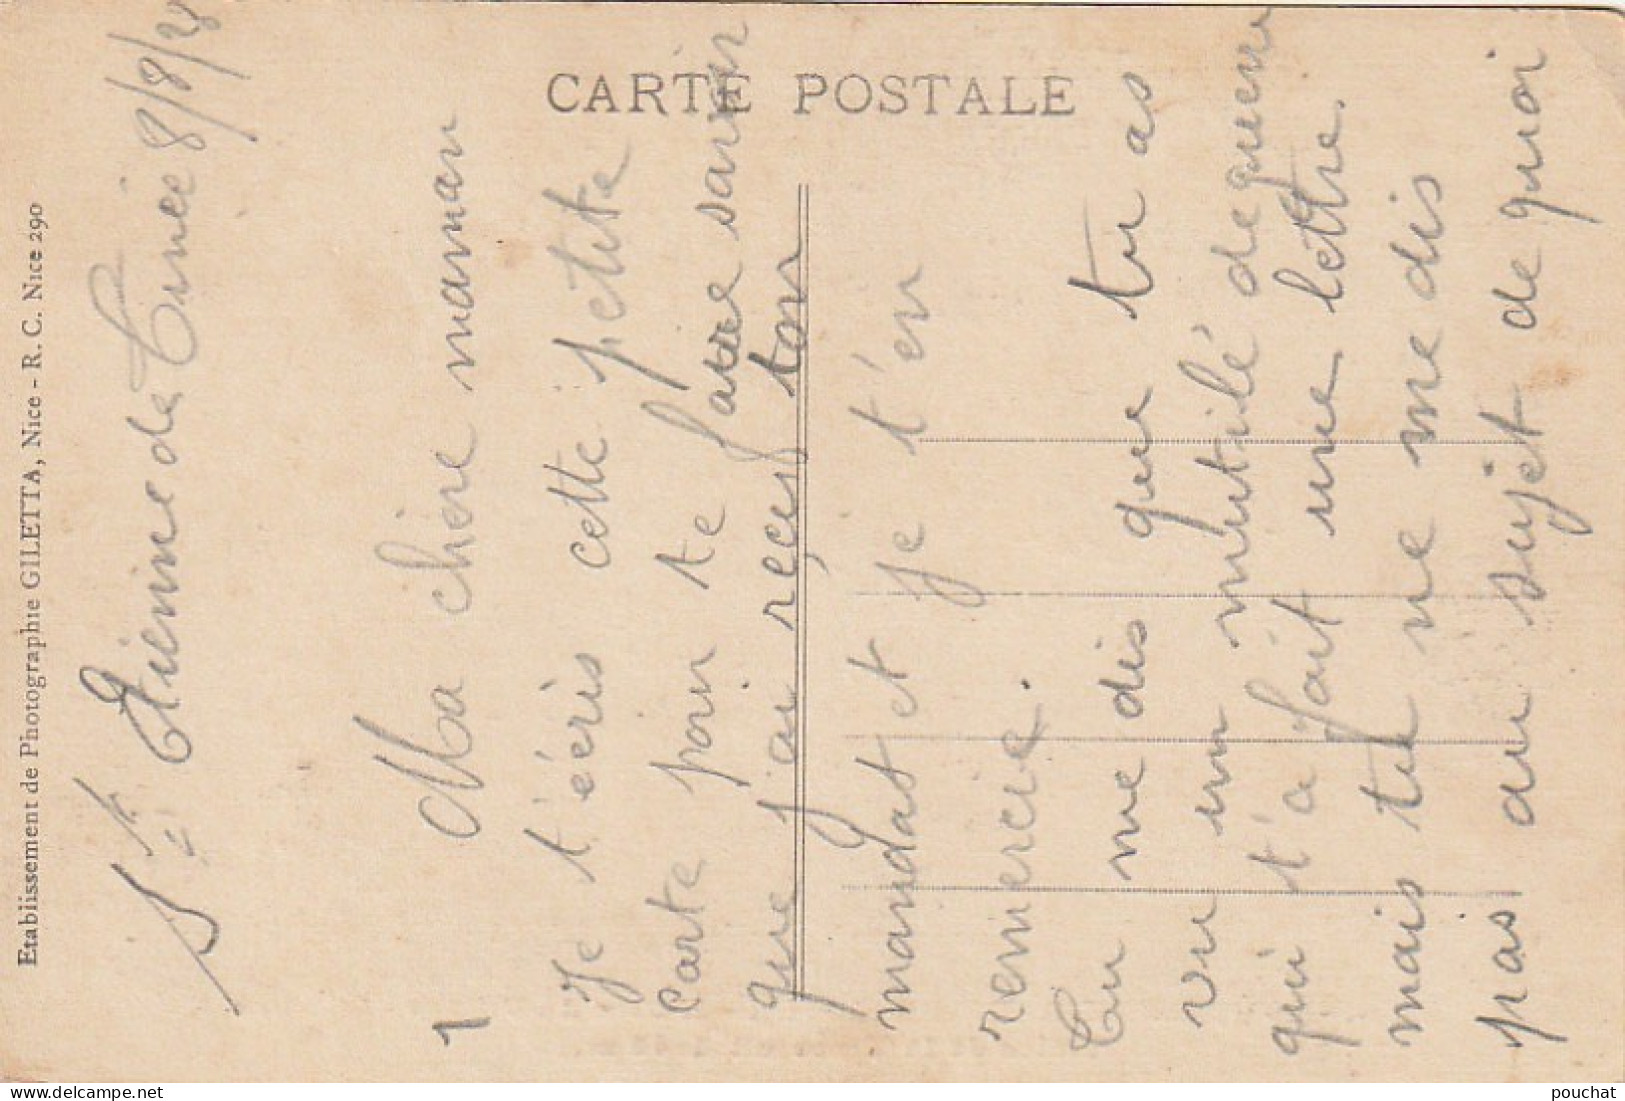 CARTE POSTALE
Etablissement de Photographie GILETTA, Nice - R. C. Nice 290
St Etienne de Tinée 8/8/28
1
Ma chère maman
Je t'écris cette petite
carte pour te faire savoir
que j'ai reçu ton
mandat et je t'en
remercie.
Tu me dis que tu as
vu un mutilé de guerre
qui t'a fait une lettre.
mais tu ne me dis
pas au sujet de quoi
pouchat